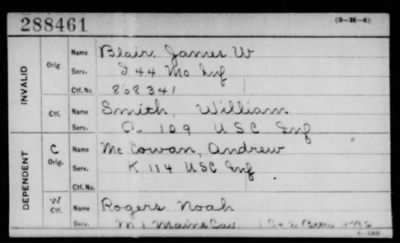 288461
(3-1M-4)
INVALID
Orig
Name Blair James W
Serv. I 44 Mo Inf
Ctf. No. 808341
Ctf.
Name Smith, William
Serv. A 109 USC Inf
DEPENDENT
C Orig.
Name McCowan, Andrew
Serv. K 114 USC Inf
Ctf. No.
W Ctf.
Name Rogers Noah
Serv. M 1 Maine Cav